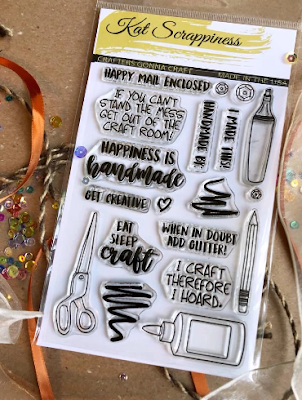 Kat Scrappiness
CRAFTERS GONNA CRAFT
MADE IN THE USA
HAPPY MAIL ENCLOSED
IF YOU CAN'T
STAND THE MESS
GET OUT OF THE
CRAFT ROOM!
HANDMADE BY:
I MADE THIS!
HAPPINESS IS
handmade
GET CREATIVE
EAT
SLEEP
craft
WHEN IN DOUBT
ADD GLITTER!
I CRAFT
THEREFORE
I HOARD.